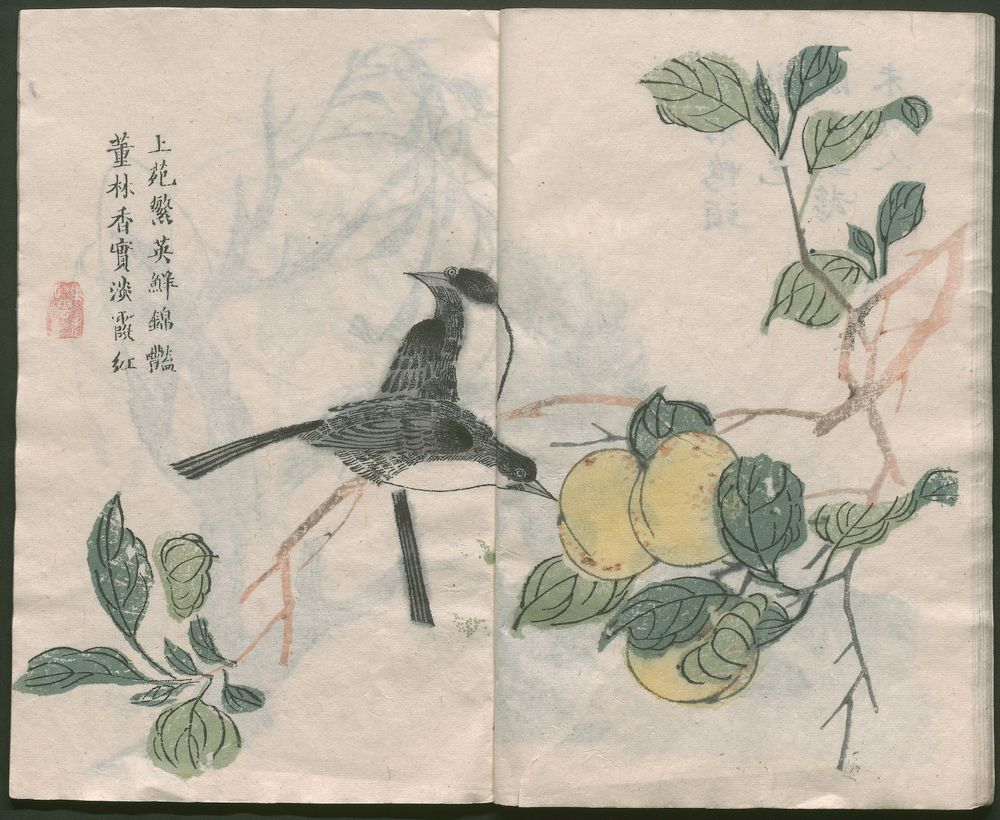 上苑繁英鮮錦豔
董林香實淡霞紅